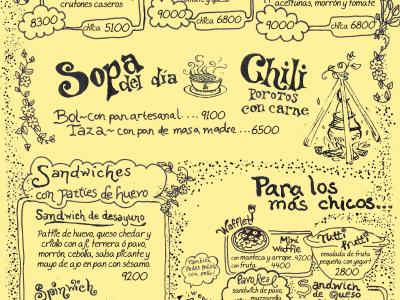 crutones caseros
8300
chica 5100
9000
chica 6800
aceitunas, morrón y tomate
9000
chica 6800
Sopa
del día
Bol~con pan artesanal....9100
Taza~con pan de masa madre...6500
&
Chili
porotos
con carne
Sandwiches
con patties de huevo
Sandwich de desayuno
Pattie de huevo, queso chedar y
criollo con ají, ternera ó pavo,
morrón, cebolla, salsa picante y
mayo de ajo en pan con sésamo.
9200
Spinwich
Para los
más chicos...
Waffley
Mini
Waffle
con manteca y arrope. 4200
con fruta 4400
Tutti
frutti
ensalada de fruta
pequeña con yogurt
2800
También
Pedes Pedirle
con pollo!
Panples
sandwich de pavo,
Sandwich
de queso